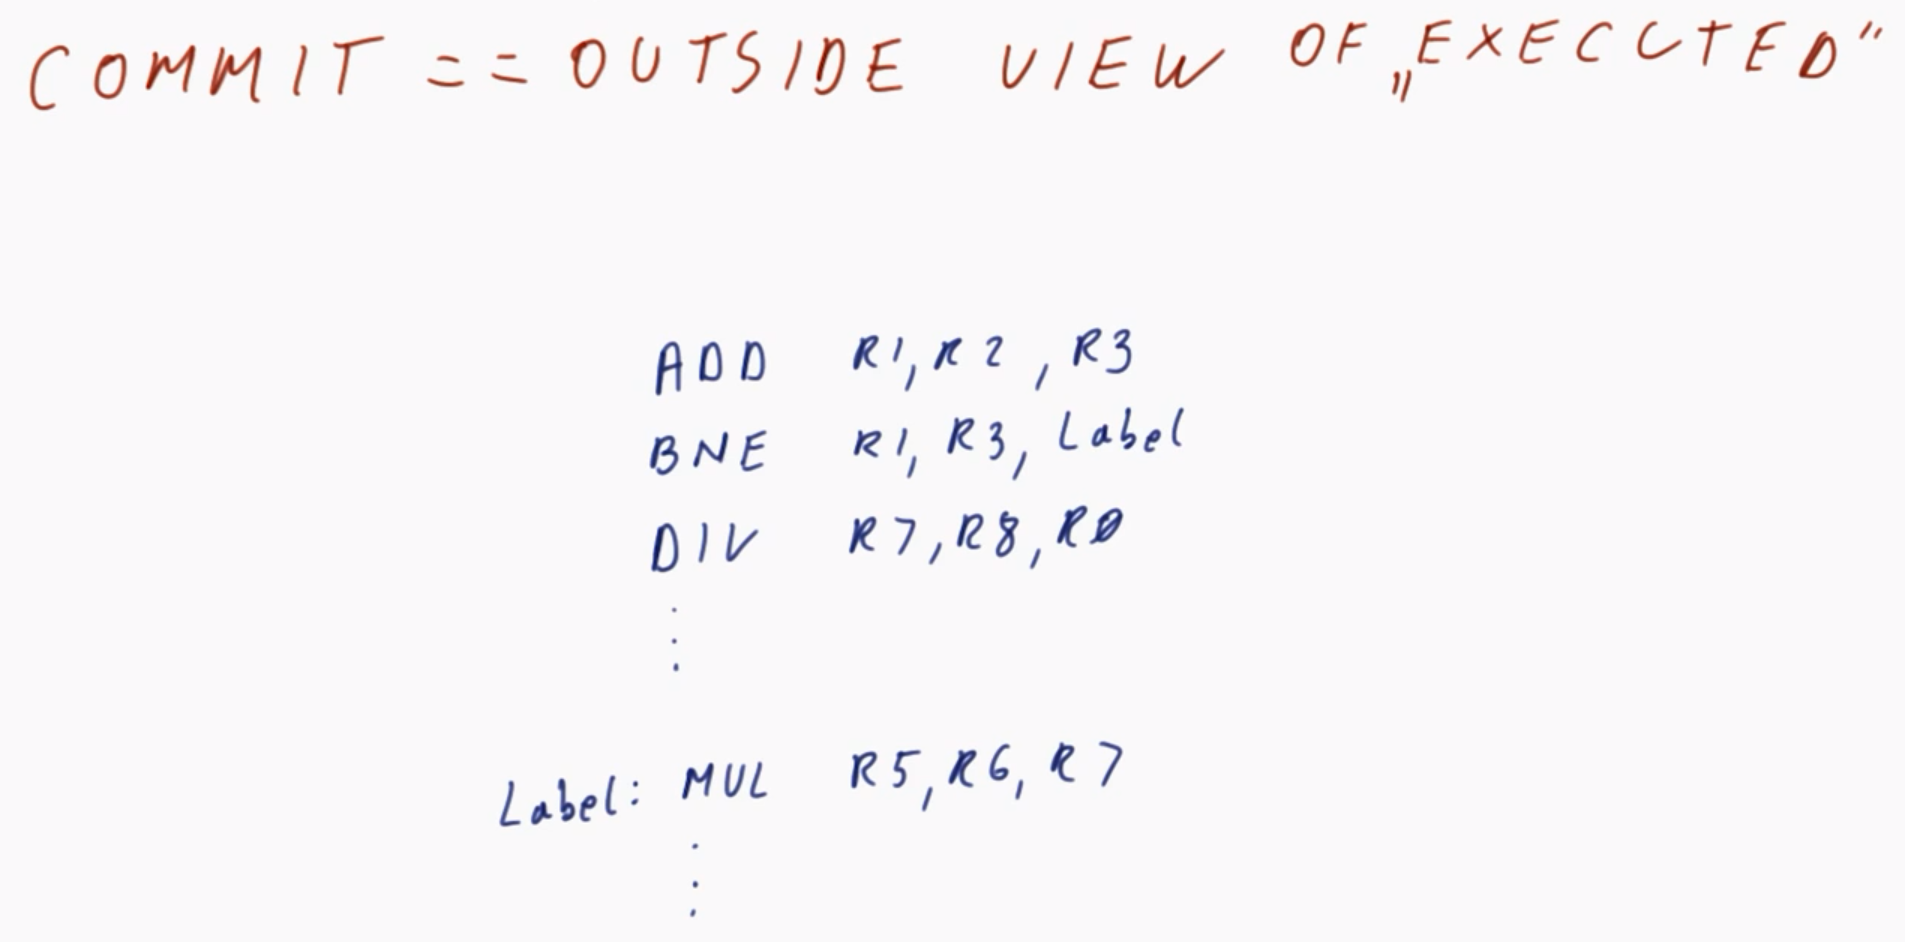 COMMIT == OUTSIDE VIEW OF „EXECUTED"
ADD R1, R2, R3
BNE R1, R3, Label
DIV R7, R8, R0
⋮
Label: MUL R5, R6, R7
⋮